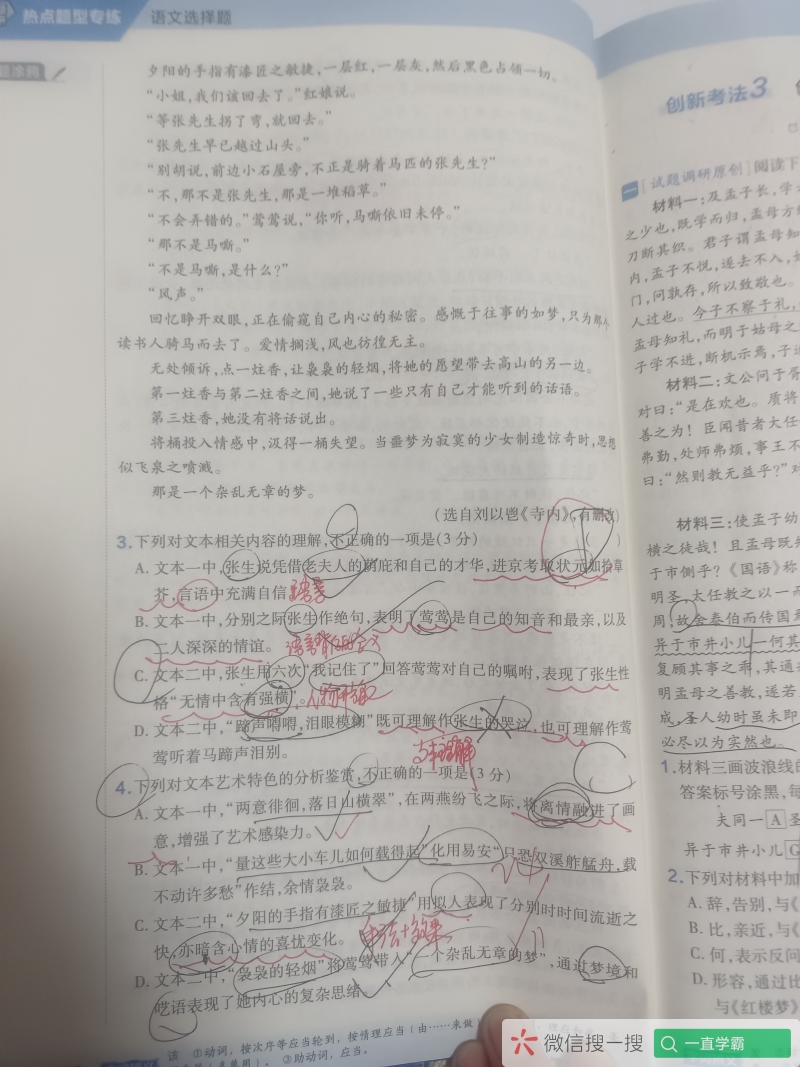 热点题型专练 语文选择题
夕阳的手指有漆匠之敏捷,一层红,一层灰,然后黑色占领一切。
“小姐,我们该回去了。”红娘说。
“等张先生拐了弯,就回去。”
“张先生早已越过山头。”
“别胡说,前边小石屋旁,不正是骑着马匹的张先生?”
“不,那不是张先生,那是一堆稻草。”
“不会弄错的。”莺莺说,“你听,马嘶依旧未停。”
“那不是马嘶。”
“不是马嘶,是什么?”
“风声。”
回忆睁开双眼,正在偷窥自己内心的秘密。感慨于往事的如梦,只为那个
读书人骑马而去了。爱情搁浅,风也彷徨无主。
无处倾诉,点一炷香,让袅袅的轻烟,将她的愿望带去高山的另一边。
第一炷香与第二炷香之间,她说了一些只有自己才能听到的话语。
第三炷香,她没有将话说出。
将桶投入情感中,汲得一桶失望。当噩梦为寂寞的少女制造惊奇时,思想
似飞泉之喷溅。
那是一个杂乱无章的梦。
(选自刘以鬯《寺内》,有删改)
3.下列对文本相关内容的理解,不正确的一项是(3分) ( )
A. 文本一中,张生说凭借老夫人的荫庇和自己的才华,进京考取状元如拾草
芥,言语中充满自信。
B. 文本一中,分别之际张生作绝句,表明了莺莺是自己的知音和最亲,以及
二人深深的情谊。
C. 文本二中,张生用六次“我记住了”回答莺莺对自己的嘱咐,表现了张生性
格“无情中含有强横”。
D. 文本二中,“蹄声嘚嘚,泪眼模糊”既可理解作张生的哭泣,也可理解作莺
莺听着马蹄声泪别。
文本理解
4.下列对文本艺术特色的分析鉴赏,不正确的一项是(3分)
A. 文本一中,“两意徘徊,落日山横翠”,在两燕纷飞之际,将离情融进了画
意,增强了艺术感染力。
B. 文本一中,“量这些大小车儿如何载得起”化用易安“只恐双溪舴艋舟,载
不动许多愁”作结,余情袅袅。
C. 文本二中,“夕阳的手指有漆匠之敏捷”用拟人表现了分别时时间流逝之
快,亦暗含心情的喜忧变化。
手法+效果
D. 文本二中,“袅袅的轻烟”将莺莺带入“一个杂乱无章的梦”,通过梦境和
呓语表现了她内心的复杂思绪。
该 ①动词,按次序等应当轮到,按情理应当(由……来做)
③助动词,应当。
创新考法3
一[试题调研原创]阅读下
材料一:及孟子长,学
之少也,既学而归,孟母方
刀断其织。君子谓孟母知
内,孟子不悦,遂去不入,
门,问孰存,所以致敬也。
人过也。今子不察于礼,
孟母知礼,而明于姑母之
子学不进,断机示焉,子
材料二:文公问于胥
对曰:“是在欢也。质将
善之为!臣闻昔者大任
弗勤,处师弗烦,事王不
曰:“然则教无益乎?”对
材料三:使孟子幼
横之徒哉!且孟母既
于市侧乎?《国语》称
明圣,太任教之以一而
周,故舍泰伯而传国
异于市井小儿一何其
复顾其事之乖,其通
明孟母之善教,遂若
成,圣人幼时虽未即
必尽以为实然也。
1.材料三画波浪线的
答案标号涂黑,每
夫同一 A 圣
异于市井小儿 G
2.下列对材料中加
A. 辞,告别,与《
B. 比,亲近,与《
C. 何,表示反问
D. 形容,通过比
与《红楼梦》
微信搜一搜 一直学霸